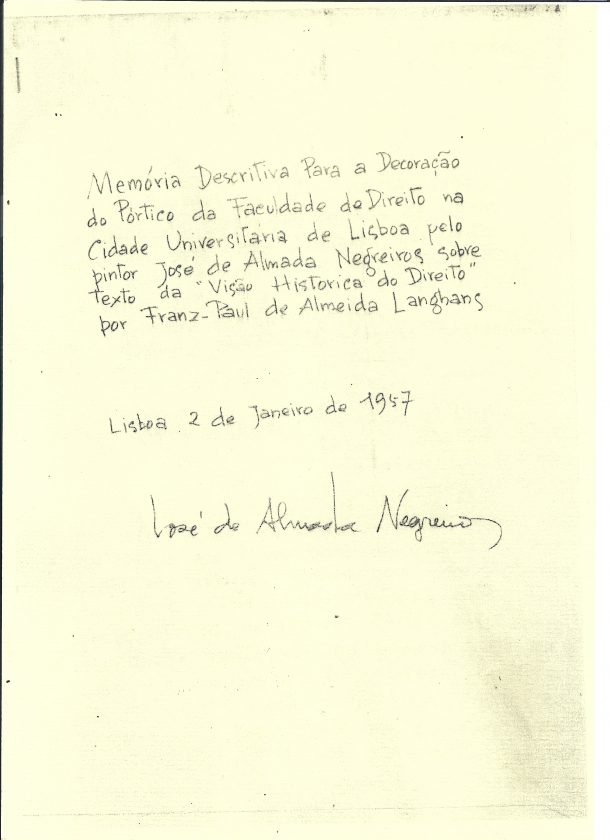 Memória Descritiva Para a Decoração
do Pórtico da Faculdade de Direito na
Cidade Universitária de Lisboa pelo
pintor José de Almada Negreiros sobre
texto da "Visão Historica do Direito"
por Franz-Paul de Almeida Langhans
Lisboa 2 de Janeiro de 1957
José de Almada Negreiros